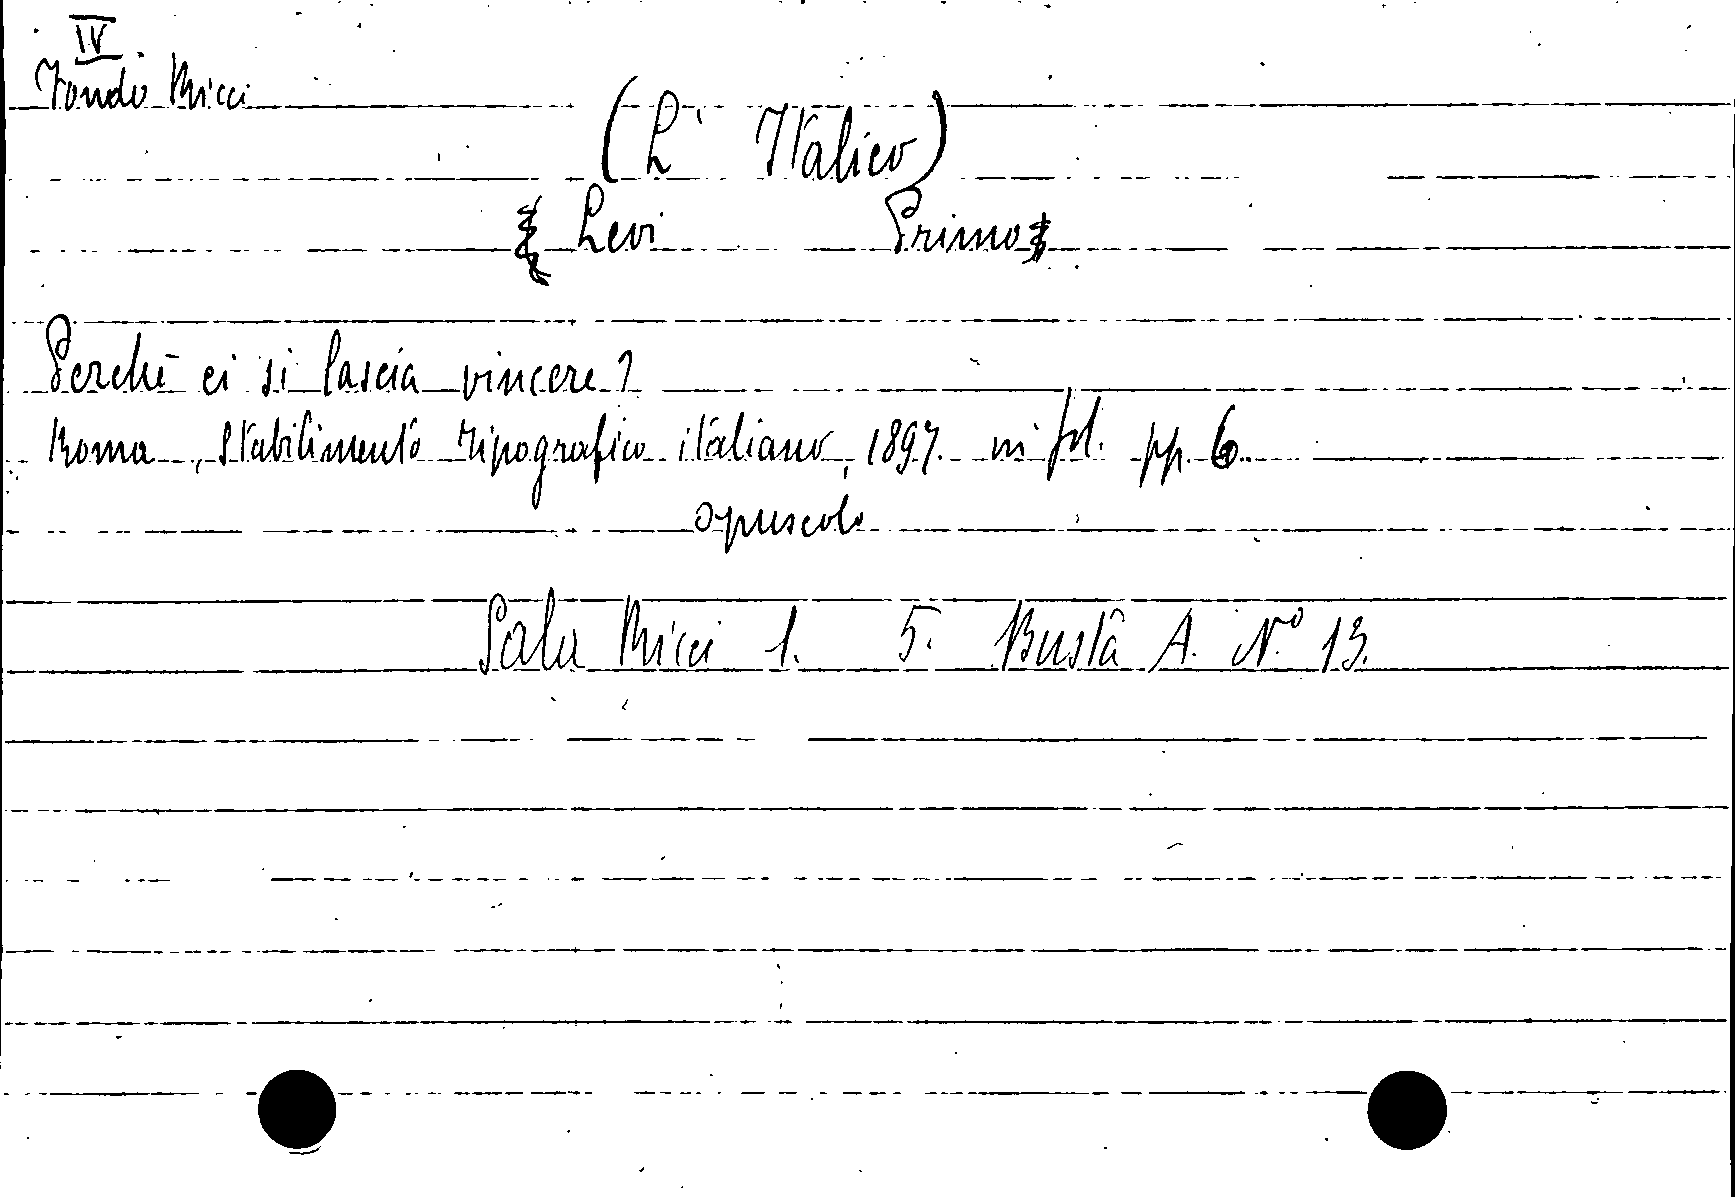 IV
Fondo Ricci
(L' Italico)
Levi Primo
Perchè ci si lascia vincere?
Roma, Stabilimento tipografico italiano, 1897. in fol. pp. 6.
opuscolo
Sala Ricci 1. 5. Busta A. N.° 13.